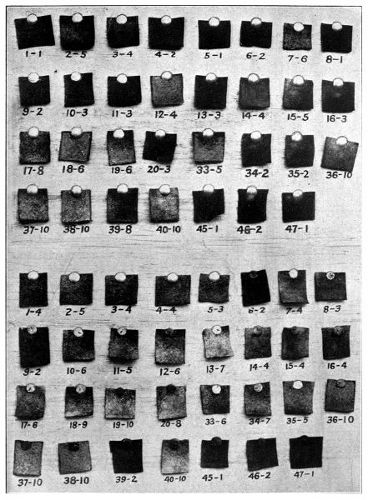 1-1 2-5 3-4 4-2 5-1 6-2 7-6 8-1
9-2 10-3 11-3 12-4 13-3 14-4 15-5 16-3
17-8 18-6 19-6 20-3 33-5 34-2 35-2 36-10
37-10 38-10 39-8 40-10 45-1 46-2 47-1
1-4 2-5 3-4 4-4 5-3 6-2 7-4 8-3
9-2 10-6 11-5 12-6 13-7 14-4 15-4 16-4
17-8 18-9 19-10 20-8 33-6 34-7 35-5 36-10
37-10 38-10 39-2 40-10 45-1 46-2 47-1